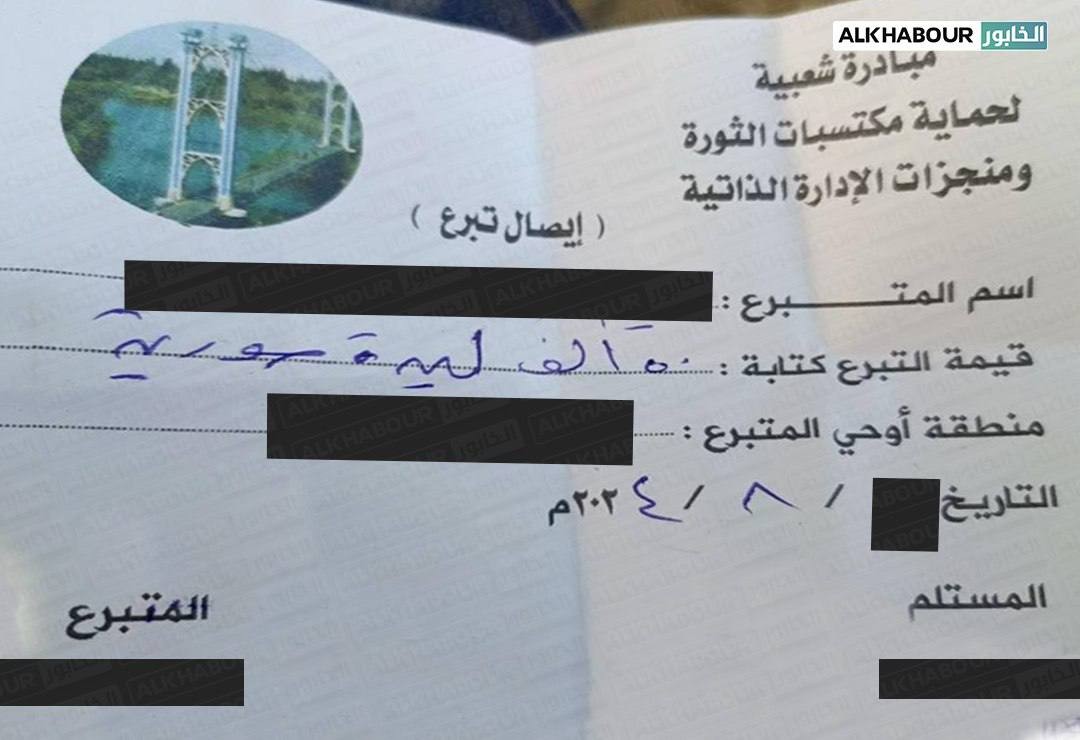 ALKHABOUR الخابور
مبادرة شعبية
لحماية مكتسبات الثورة
ومنجزات الإدارة الذاتية
( إيصال تبرع )
اسم المتـــــــبرع :
قيمة التبرع كتابة : ألف ليرة سورية
منطقة أوحي المتبرع :
التاريخ / ٨ / ٢٠٢٤م
المستلم
المتبرع